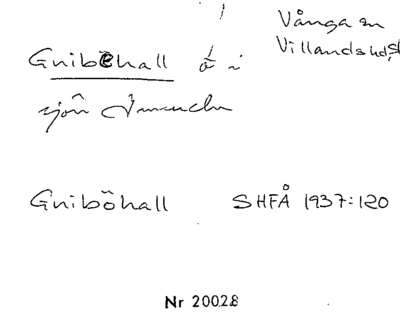 Vånga sn
Villands hd, Sk
Gnibehall ö i
sjön Immeln
Gniböhall SHFÅ 1937:120
Nr 20028